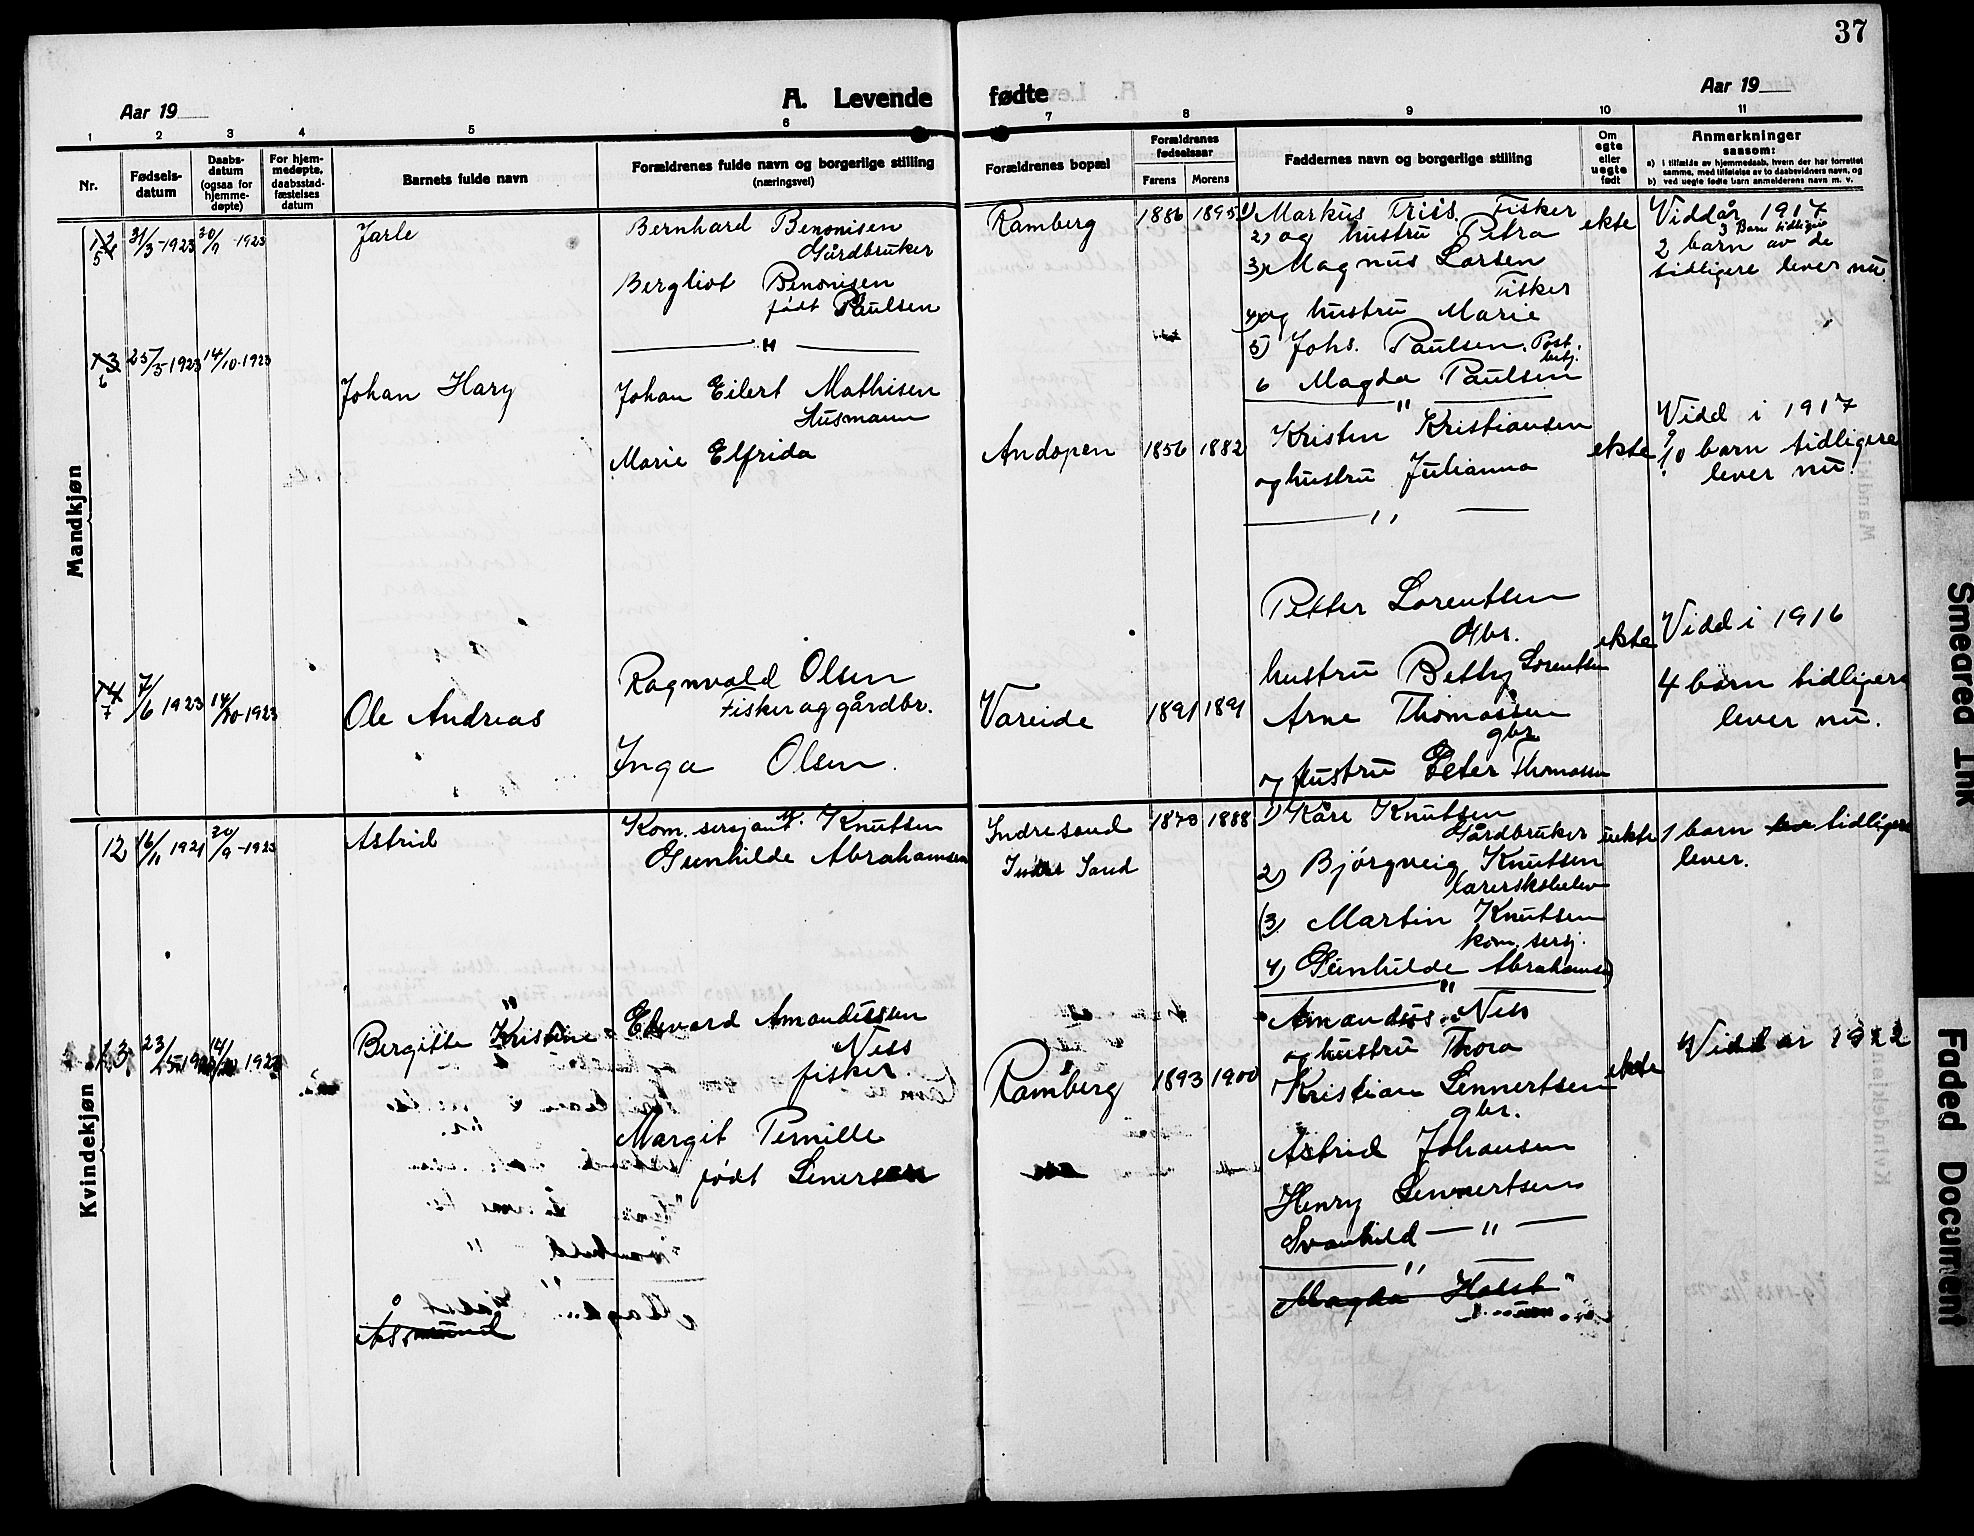 37
Aar 19
A. Levende fødte
Aar 19
1 2 3 4 5 6 7 8 9 10 11
Nr.
Fødsels-
datum
Daabs-
datum
(ogsaa for
hjemme-
døpte)
For hjem-
medøpte,
daabsstad-
fæstelses
datum
Barnets fulde navn
Forældrenes fulde navn og borgerlige stilling
(næringsvei)
Forældrenes bopæl
Forældrenes
fødselsaar
Farens Morens
Faddernes navn og borgerlige stilling
Om
egte
eller
uegte
født
Anmerkninger
saasom:
a) i tilfælde av hjemmedaab, hvem der har forrettet
samme, med tilføielse av to daabsvidners navn, og
b) ved uegte fødte barn anmelderens navn m. v.
Mandkjøn
12
5
31/3-1923
20/9-1923
Jarle
Bernhard Benonisen
Gårdbruker
Bergliot Benonisen
født Paulsen
Ramberg
1886 1895
1) Markus Friis Fisker
2) og hustru Petra
3) Magnus Larsen
Fisker
4) og hustru Marie
5) Johs. Paulsen. Post.
6 Magda Paulsen
ekte
Viddår 1917
3 Barn tidligere
2 barn av de
tidligere lever nu
13
6
25/5-1923
14/10-1923
Johan Hary
Johan Eilert Mathisen
Husmann
Marie Elfrida
Andopen
1856 1882
Kristen Kristiansen
og hustru Julianna
ekte
Vidd i 1917
9/10 barn tidligere
lever nu.
14
7
7/6 1923
14/10-1923
Ole Andreas
Ragnvald Olsen
Fisker og gårdbr.
Inga Olsen.
Vareide
1891 1891
Petter Lorentsen
gbr.
hustru Bethy Lorentsen
Arne Thomassen
gbr
og hustru Peter Thomassen
ekte
Vidd i 1916
4 barn tidligere
lever nu.
Kvindekjøn
12
16/11 1921
20/9-1923
Astrid
Kom. sersjant. Knutsen
Gunhilde Abrahamsen
Indresand
Indre Sand
1873 1888
1) Kåre Knutsen
Gårdbruker
2) Bjørgveig Knutsen
lærerskolelev
3) Martin Knutsen
kom. sersj.
4) Gunhilde Abrahamsen
uekte
1 barn tidligere
lever.
13
Bergitte Kristine
Edvard Amandussen
Ness
fisker
Margit Pernille
født Lenertsen
Ramberg
1893 1900
Amandus Ness
og hustru Thora
Kristian Lennertsen
gbr.
Astrid Johansen
Henry Lennertsen
Svanhild — " —
ekte
Vidd ar 1922
Åsmund
Magda Holst
Smeared Ink
Faded Document